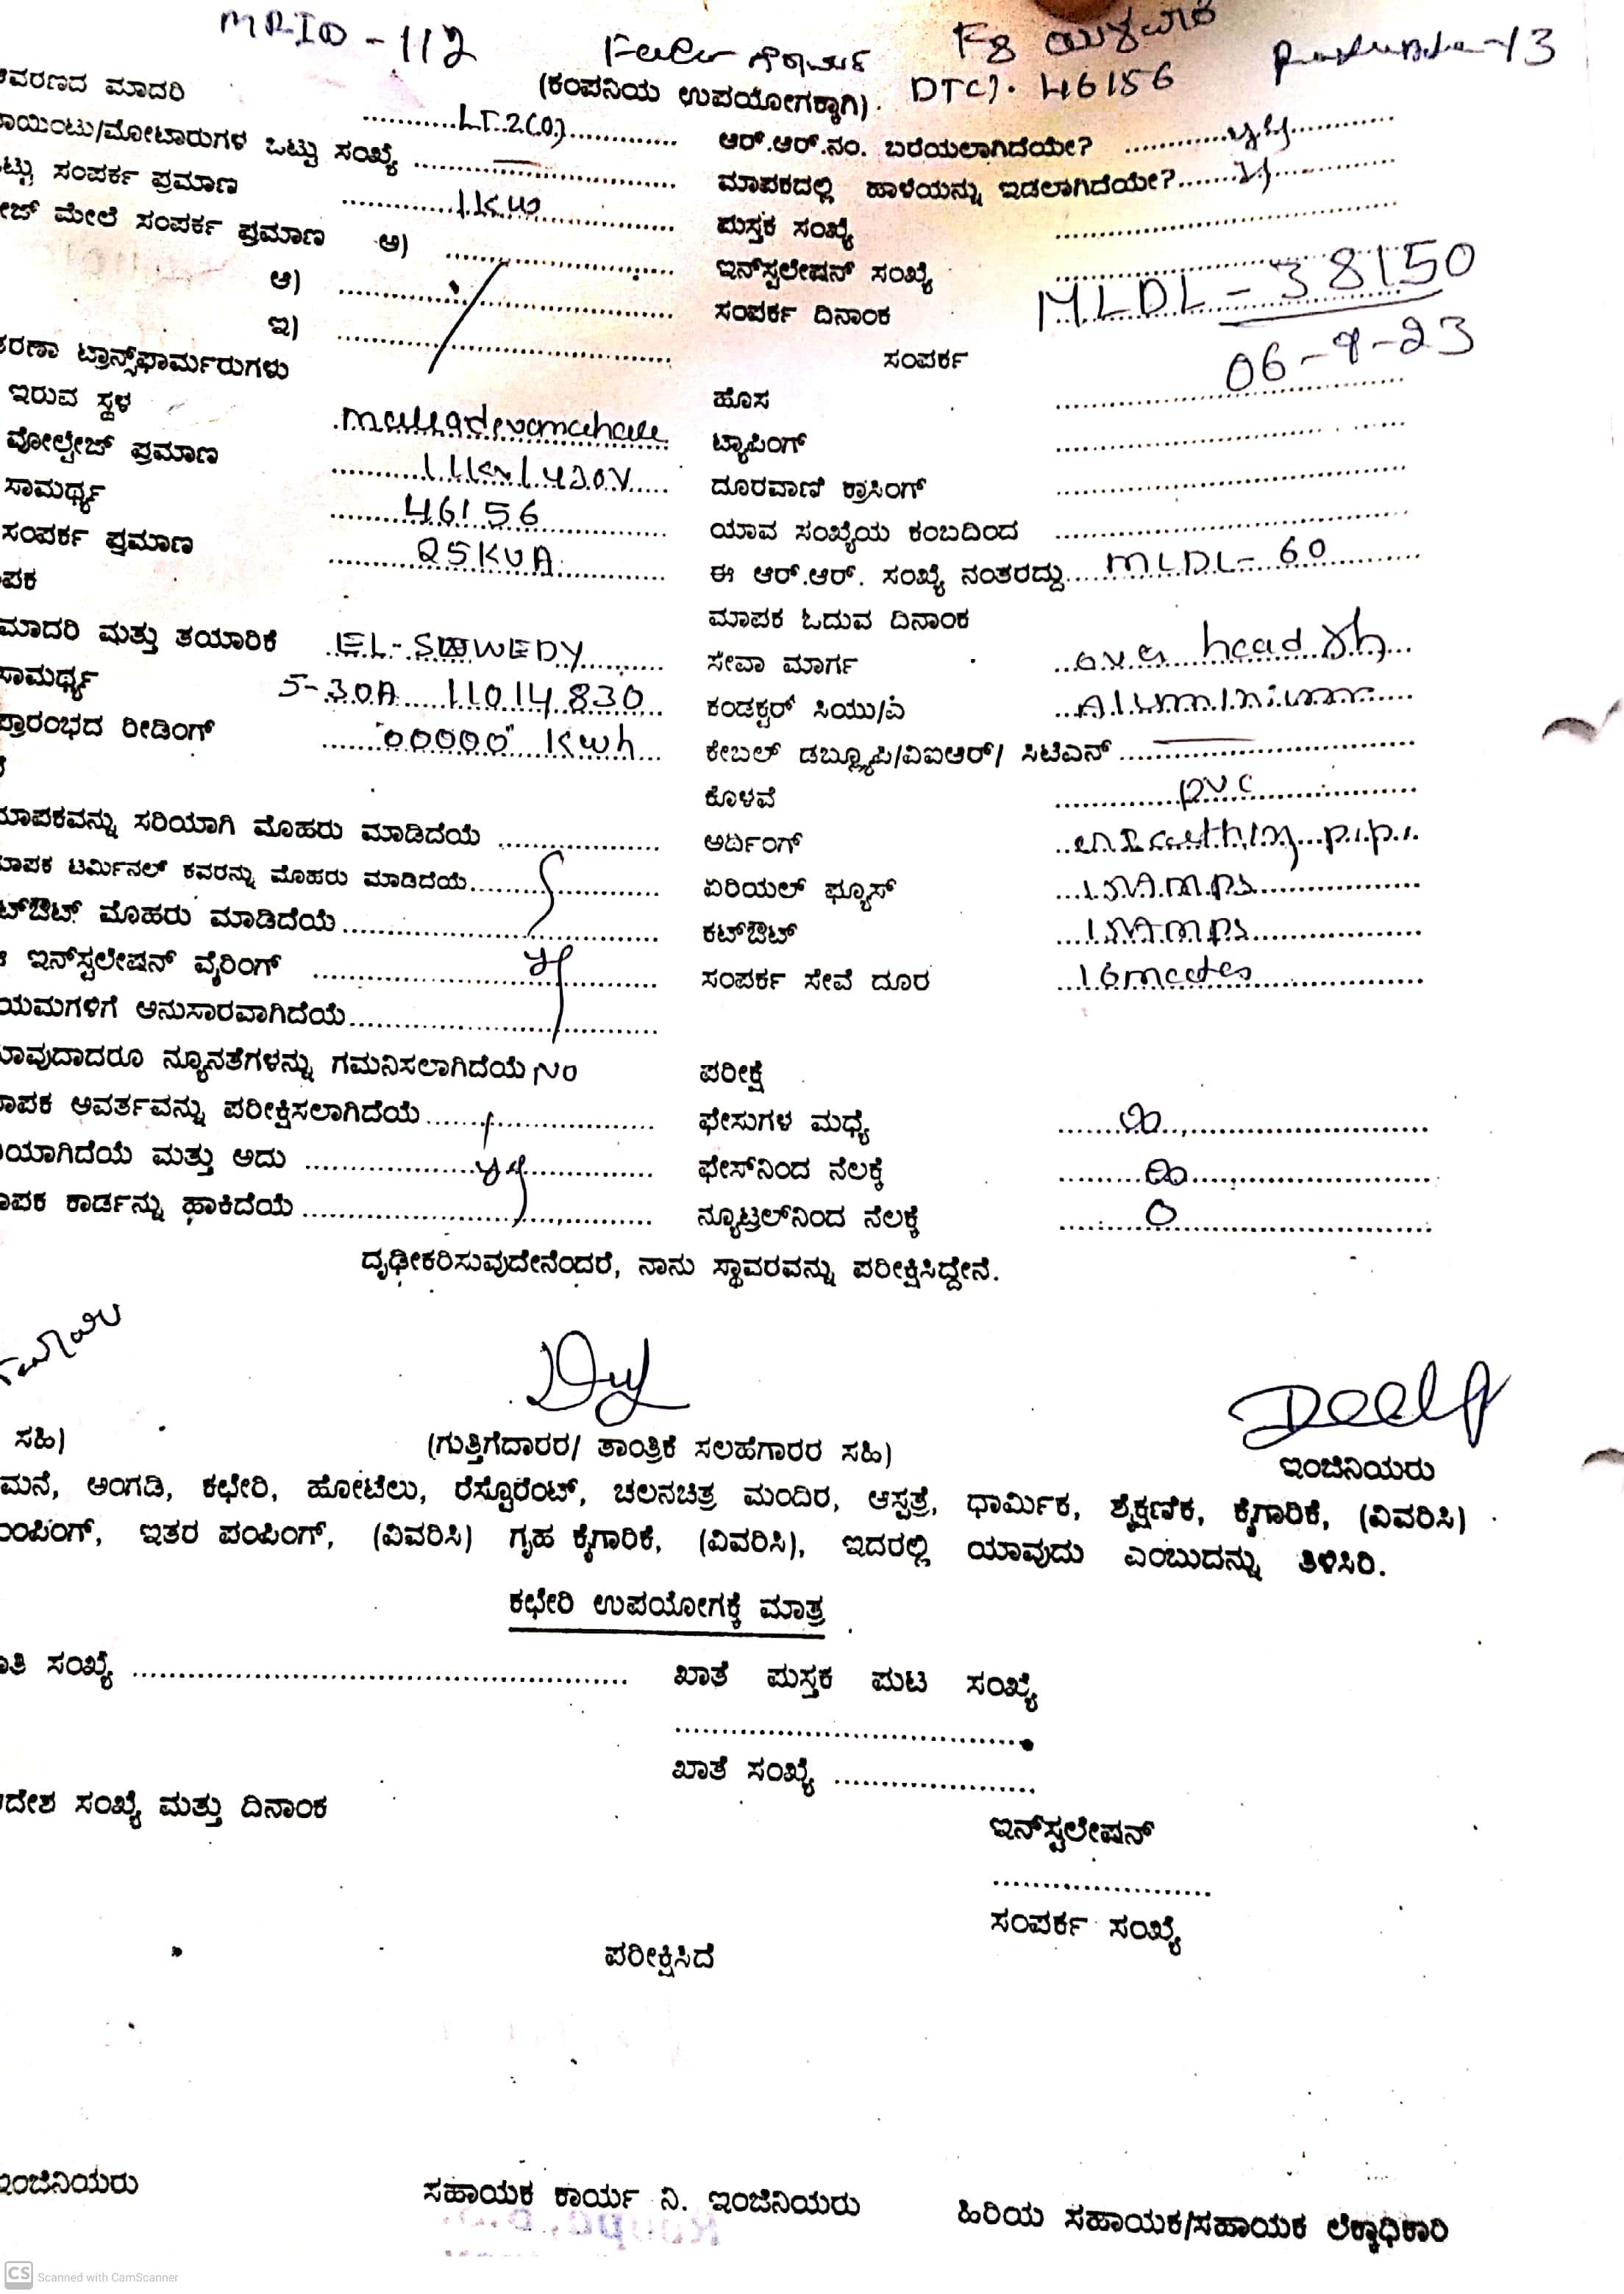 MRID - 112 F8
(ಕಂಪನಿಯ ಉಪಯೋಗಕ್ಕಾಗಿ). DTC). 46156
ಮಾದರಿ ..........LT.2(a)..........
ಆರ್.ಆರ್.ನಂ. ಬರೆಯಲಾಗಿದೆಯೇ? ..........
ಒಟ್ಟು ಸಂಖ್ಯೆ ..........
ಮಾಪಕದಲ್ಲಿ ಹಾಳೆಯನ್ನು ಇಡಲಾಗಿದೆಯೇ?..........
ಸಂಪರ್ಕ ಪ್ರಮಾಣ ..........1Kw..........
ಪುಸ್ತಕ ಸಂಖ್ಯೆ ..........
ಮೇಲೆ ಸಂಪರ್ಕ ಪ್ರಮಾಣ ಅ) ..........
ಇನ್‌ಸ್ಟಲೇಷನ್ ಸಂಖ್ಯೆ MLDL - 38150
ಆ) ..........
ಸಂಪರ್ಕ ದಿನಾಂಕ 06-9-23
ಇ) ..........
ಸಂಪರ್ಕ
ಟ್ರಾನ್ಸ್‌ಫಾರ್ಮರುಗಳು
ಇರುವ ಸ್ಥಳ
ಹೊಸ ..........
ವೋಲ್ಟೇಜ್ ಪ್ರಮಾಣ ..........11Kv/420V..........
ಟ್ಯಾಪಿಂಗ್ ..........
ಸಾಮರ್ಥ್ಯ ..........46156..........
ದೂರವಾಣಿ ಕ್ರಾಸಿಂಗ್ ..........
ಸಂಪರ್ಕ ಪ್ರಮಾಣ ..........25KVA..........
ಯಾವ ಸಂಖ್ಯೆಯ ಕಂಬದಿಂದ ..........
ಈ ಆರ್.ಆರ್. ಸಂಖ್ಯೆ ನಂತರದ್ದು.....MLDL-60..........
ಮಾಪಕ ಓದುವ ದಿನಾಂಕ
ಮಾದರಿ ಮತ್ತು ತಯಾರಿಕೆ ..EL-SEWEDY..........
ಸೇವಾ ಮಾರ್ಗ ..over head..........
ಸಾಮರ್ಥ್ಯ 5-30A 11014830
ಕಂಡಕ್ಟರ್ ಸಿಯು/ಎ ..Aluminium..........
ಪ್ರಾರಂಭದ ರೀಡಿಂಗ್ ......"00000" Kwh...
ಕೇಬಲ್ ಡಬ್ಲ್ಯೂಪಿ/ವಿಐಆರ್/ ಸಿಟಿಎನ್ ..........
ಕೊಳವೆ ..........pvc..........
ಸರಿಯಾಗಿ ಮೊಹರು ಮಾಡಿದೆಯೆ ..........
ಅರ್ದಿಂಗ್
ಟರ್ಮಿನಲ್ ಕವರನ್ನು ಮೊಹರು ಮಾಡಿದೆಯೆ..........
ಏರಿಯಲ್ ಫ್ಯೂಸ್ ..15Amps..........
ಮೊಹರು ಮಾಡಿದೆಯೆ..........
ಕಟ್‌ಔಟ್ ..15Amps..........
ಇನ್‌ಸ್ಟಲೇಷನ್ ವೈರಿಂಗ್ ..........
ಸಂಪರ್ಕ ಸೇವೆ ದೂರ
ಅನುಸಾರವಾಗಿದೆಯೆ..........
ನ್ಯೂನತೆಗಳನ್ನು ಗಮನಿಸಲಾಗಿದೆಯೆ NO
ಪರೀಕ್ಷೆ
ಅವರ್ತವನ್ನು ಪರೀಕ್ಷಿಸಲಾಗಿದೆಯೆ..........
ಫೇಸುಗಳ ಮಧ್ಯೆ ..........
ಮತ್ತು ಅದು ..........
ಫೇಸ್‌ನಿಂದ ನೆಲಕ್ಕೆ ..........
ಕಾರ್ಡನ್ನು ಹಾಕಿದೆಯೆ ..........
ನ್ಯೂಟ್ರಲ್‌ನಿಂದ ನೆಲಕ್ಕೆ ..........0..........
ದೃಢೀಕರಿಸುವುದೇನೆಂದರೆ, ನಾನು ಸ್ಥಾವರವನ್ನು ಪರೀಕ್ಷಿಸಿದ್ದೇನೆ.
ಸಹಿ)
(ಗುತ್ತಿಗೆದಾರರ/ ತಾಂತ್ರಿಕೆ ಸಲಹೆಗಾರರ ಸಹಿ)
ಇಂಜಿನಿಯರು
ಮನೆ, ಅಂಗಡಿ, ಕಛೇರಿ, ಹೋಟೆಲು, ರೆಸ್ಟೊರೆಂಟ್, ಚಲನಚಿತ್ರ ಮಂದಿರ, ಆಸ್ಪತ್ರೆ, ಧಾರ್ಮಿಕ, ಶೈಕ್ಷಣಿಕ, ಕೈಗಾರಿಕೆ, (ವಿವರಿಸಿ)
ಇತರ ಪಂಪಿಂಗ್, (ವಿವರಿಸಿ) ಗೃಹ ಕೈಗಾರಿಕೆ, (ವಿವರಿಸಿ), ಇದರಲ್ಲಿ ಯಾವುದು ಎಂಬುದನ್ನು ತಿಳಿಸಿರಿ.
ಕಛೇರಿ ಉಪಯೋಗಕ್ಕೆ ಮಾತ್ರ
ಸಂಖ್ಯೆ ..........
ಖಾತೆ ಪುಸ್ತಕ ಪುಟ ಸಂಖ್ಯೆ
..........
ಖಾತೆ ಸಂಖ್ಯೆ ..........
ಸಂಖ್ಯೆ ಮತ್ತು ದಿನಾಂಕ
ಇನ್‌ಸ್ಟಲೇಷನ್
..........
ಸಂಪರ್ಕ ಸಂಖ್ಯೆ
ಪರೀಕ್ಷಿಸಿದೆ
ಇಂಜಿನಿಯರು
ಸಹಾಯಕ ಕಾರ್ಯ ನಿ. ಇಂಜಿನಿಯರು
ಹಿರಿಯ ಸಹಾಯಕ/ಸಹಾಯಕ ಲೆಕ್ಕಾಧಿಕಾರಿ
CS Scanned with CamScanner